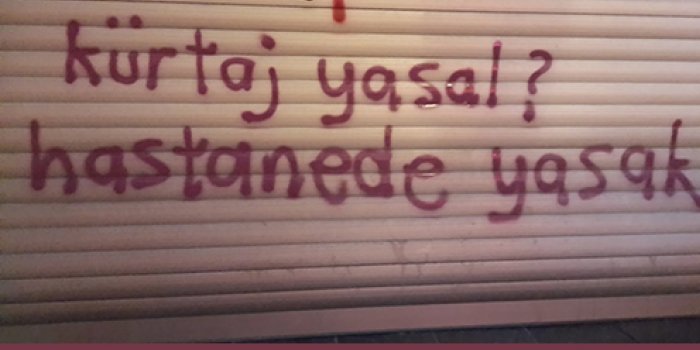 kürtaj yasal?
hastanede yasak